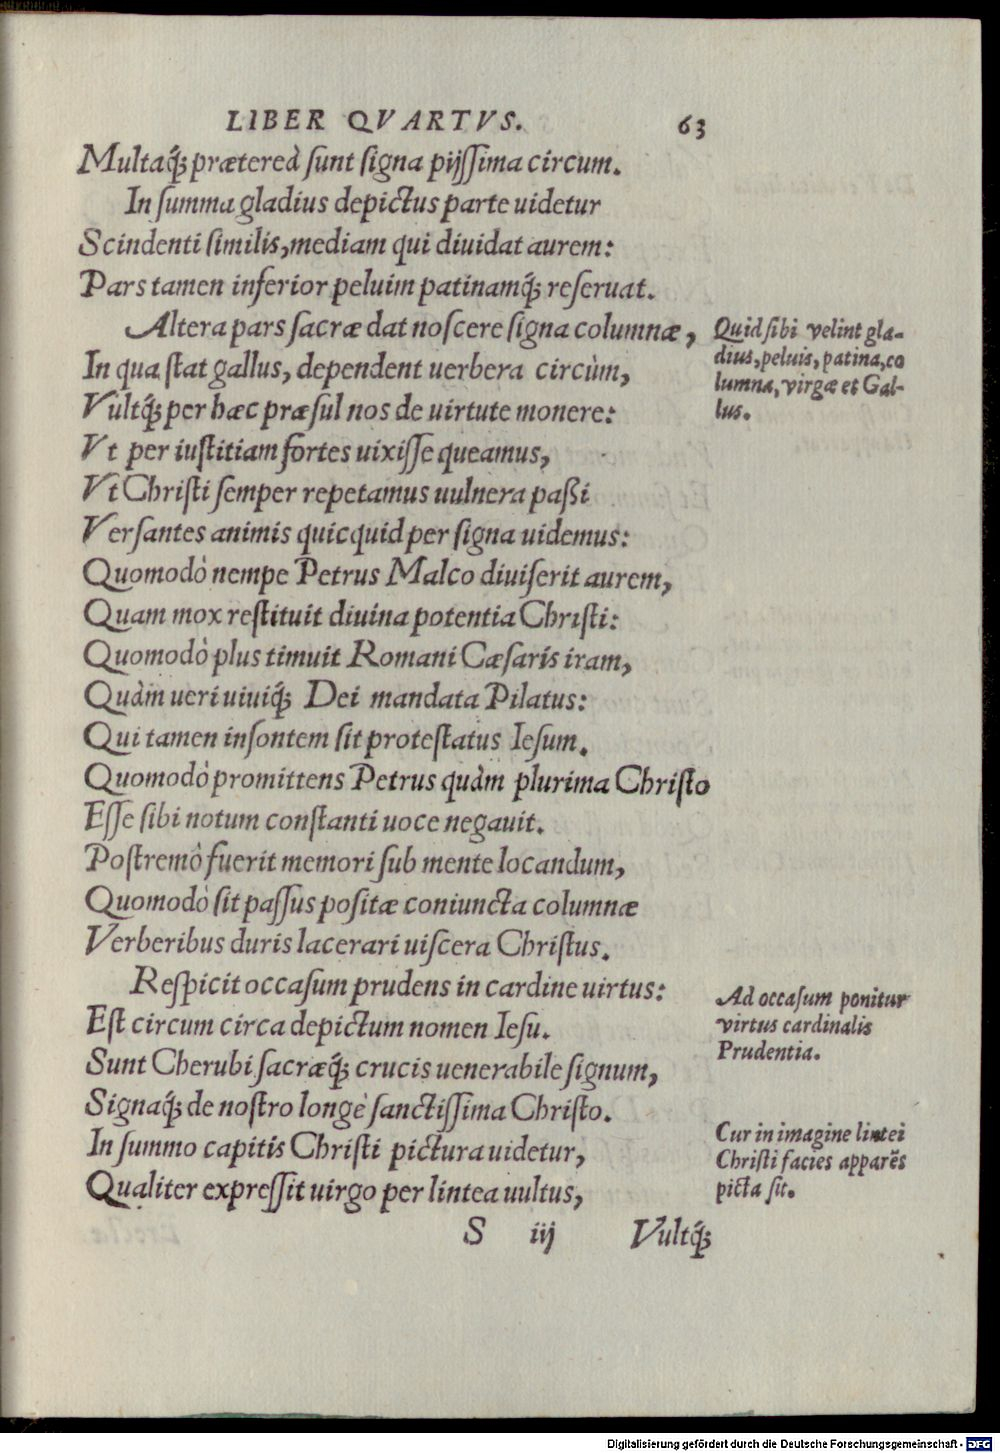 LIBER QVARTVS. 63
Multaq́ꝫ prætereà ſunt ſigna pijſſima circum.
In ſumma gladius depictus parte uidetur
Scindenti ſimilis, mediam qui diuidat aurem:
Pars tamen inferior peluim patinamq́ꝫ reſeruat.
Altera pars ſacræ dat noſcere ſigna columnæ,
In qua ſtat gallus, dependent uerbera circùm,
Vultq́ꝫ per hæc præſul nos de uirtute monere:
Vt per iuſtitiam fortes uixiſſe queamus,
Vt Chriſti ſemper repetamus uulnera paßi
Verſantes animis quicquid per ſigna uidemus:
Quomodò nempe Petrus Malco diuiſerit aurem,
Quam mox reſtituit diuina potentia Chriſti:
Quomodò plus timuit Romani Cæſaris iram,
Quàm ueri uiuiq́ꝫ Dei mandata Pilatus:
Qui tamen inſontem ſit proteſtatus Ieſum.
Quomodò promittens Petrus quàm plurima Chriſto
Eſſe ſibi notum conſtanti uoce negauit.
Poſtremò fuerit memori ſub mente locandum,
Quomodò ſit paſſus poſitæ coniuncta columnæ
Verberibus duris lacerari uiſcera Chriſtus.
Reſpicit occaſum prudens in cardine uirtus:
Eſt circum circa depictum nomen Ieſu.
Sunt Cherubi ſacræq́ꝫ crucis uenerabile ſignum,
Signaq́ꝫ de noſtro longè ſanctiſſima Chriſto.
In ſummo capitis Chriſti pictura uidetur,
Qualiter expreſſit uirgo per lintea uultus,
S iij Vultq́ꝫ
Quid ſibi velint gla-
dius, peluis, patina, co
lumna, virgæ et Gal-
lus.
Ad occaſum ponitur
virtus cardinalis
Prudentia.
Cur in imagine lintei
Chriſti facies apparẽs
picta ſit.
Digitalisierung gefördert durch die Deutsche Forschungsgemeinschaft - DFG